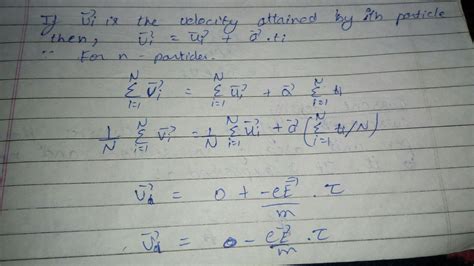 If v⃗i is the velocity attained by ith particle
then, v⃗i = u⃗i + a⃗ . ti
∵ For n - particles.
N∑i=1 v⃗i = N∑i=1 u⃗i + a⃗ N∑i=1 ti
1/N N∑i=1 v⃗i = 1/N N∑i=1 u⃗i + a⃗ (N∑i=1 ti/N)
v⃗d = 0 + -eE⃗/m . τ
v⃗d = - eE⃗/m . τ